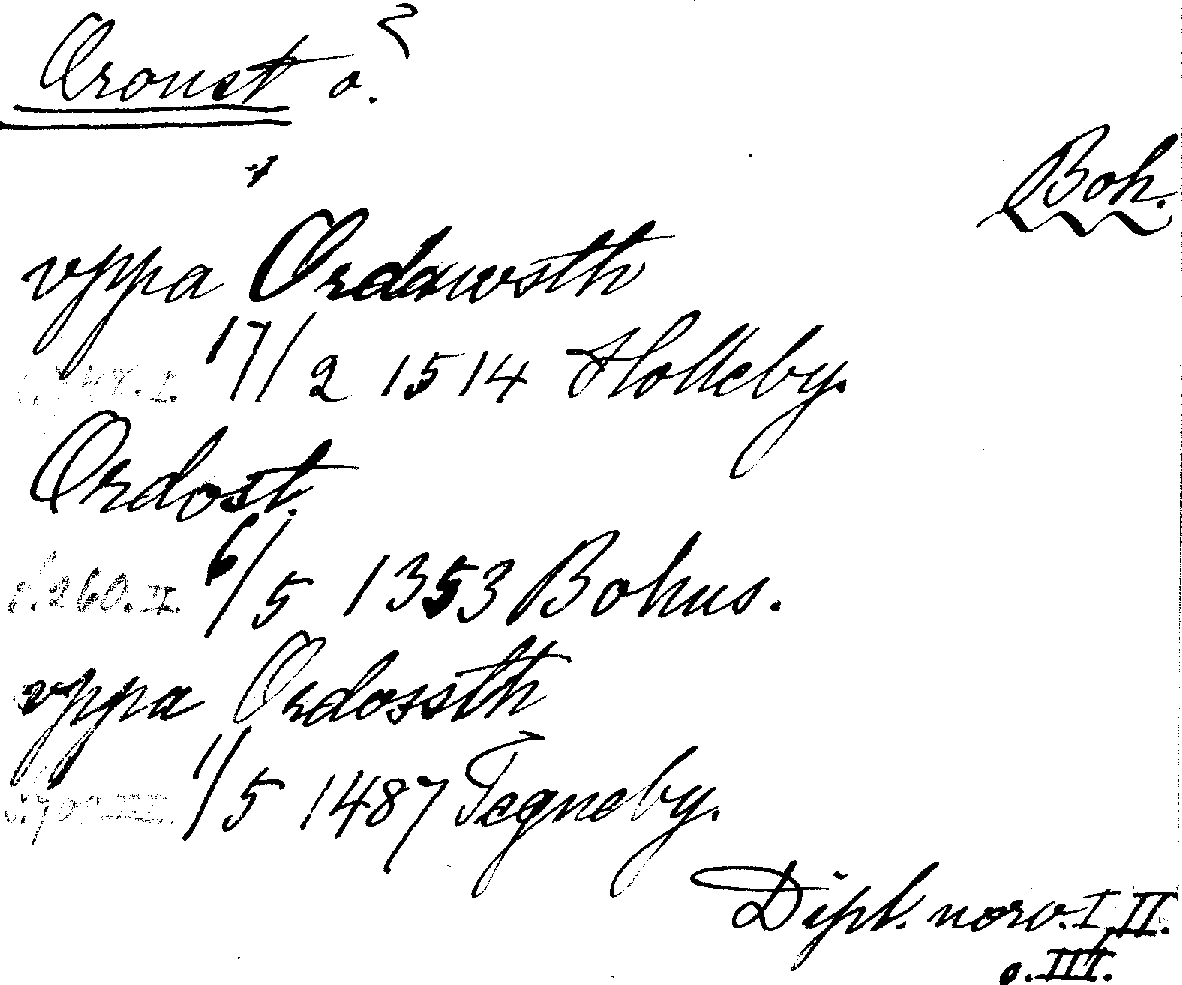 Oroust o.
Boh.
vppa Ordawsth
17/2 1514 Holleby.
Ordost.
s.260.II. 6/5 1353 Bohus.
vppa Ordossth
1/5 1487 Tegneby.
Dipl. norv. I, II.
o. III.